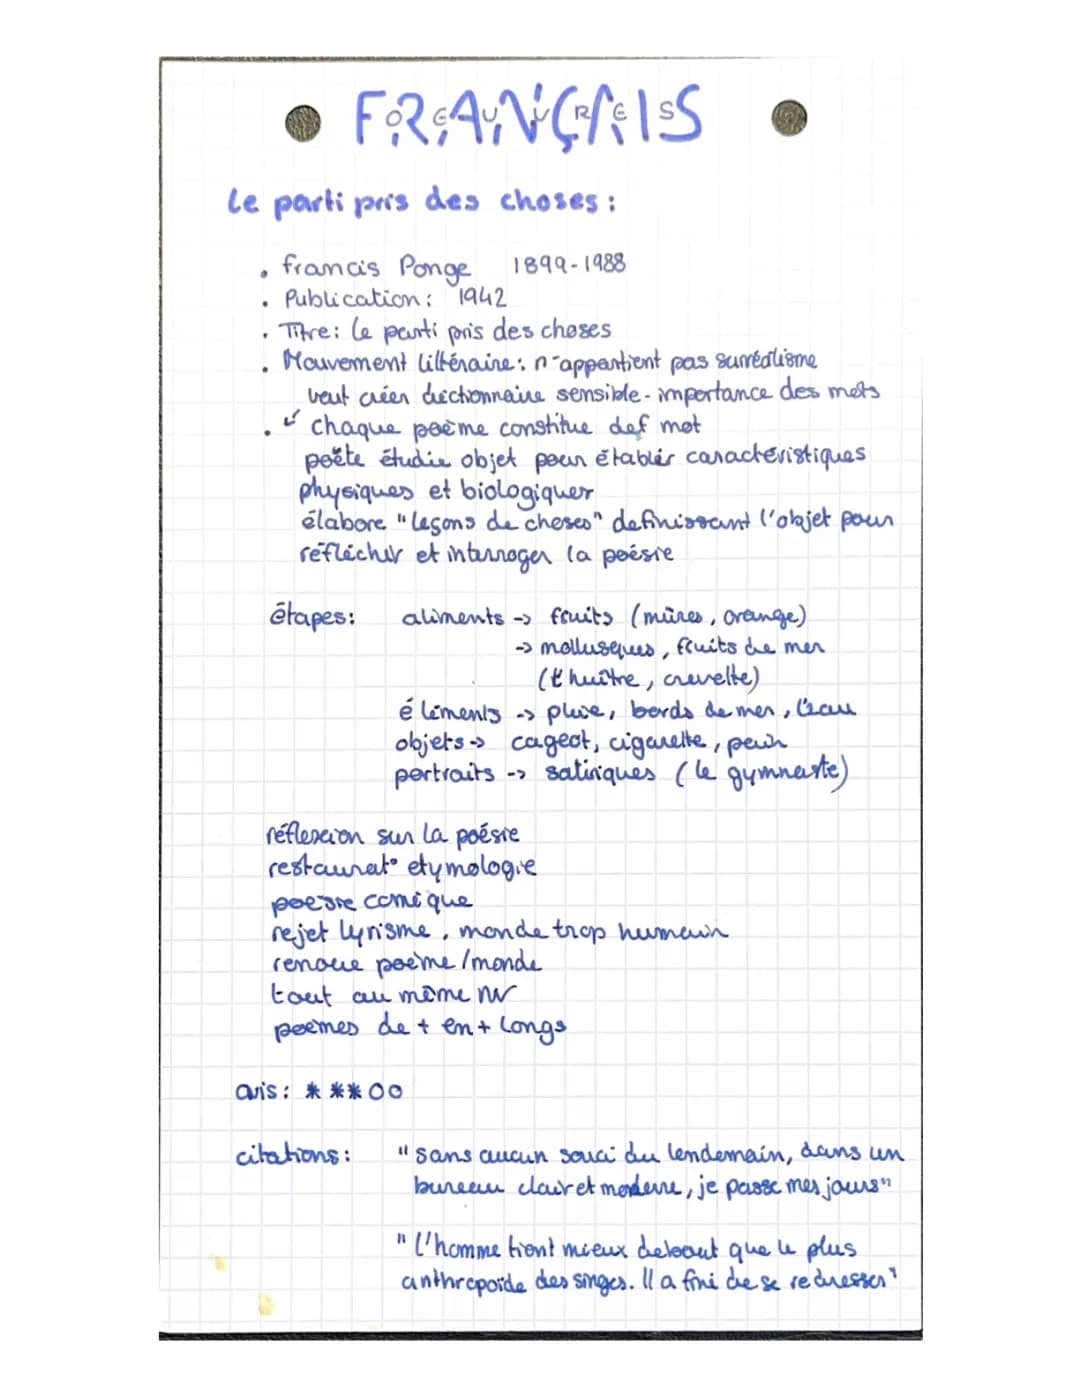 FRANÇAIS
OEUVRES
Le parti pris des choses :
• Francis Ponge 1899-1988
• Publication : 1942
• Titre : Le parti pris des choses
• Mouvement littéraire : n'appartient pas surréalisme
veut créer dictionnaire sensible - importance des mots
• chaque poème constitue def mot
poète étudie objet pour établir caractéristiques
physiques et biologiques
élabore "leçons de choses" definissant l'objet pour
réfléchir et interroger la poésie
étapes : aliments -> fruits (mûres, orange)
-> mollusques, fruits de mer
(l'huître, crevette)
éléments -> pluie, bords de mer, l'eau
objets -> cageot, cigarette, pain
portraits -> satiriques (le gymnaste)
réflexion sur la poésie
restaurat° etymologie
poesie comique
rejet lyrisme, monde trop humain
renoue poème/monde
tout au même nv
poemes de + en + longs
avis : * * * O O
citations : "Sans aucun souci du lendemain, dans un
bureau clair et moderne, je passe mes jours"
"L'homme tient mieux debout que le plus
anthropoïde des singes. Il a fini de se redresser"